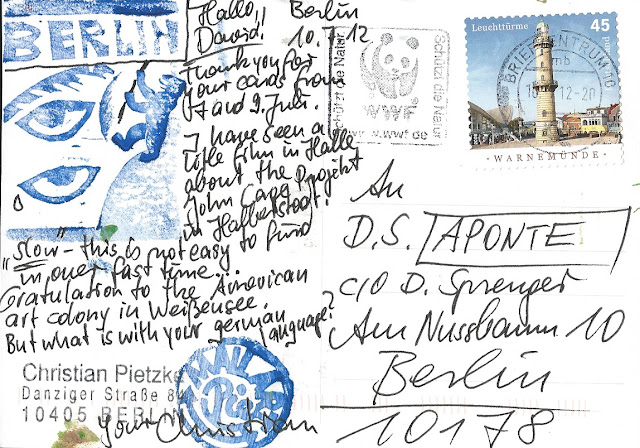 BERLIN
Hallo,, Berlin
David! 10.7.12
Thank you for
your cards from
7 and 9. Juli.
I have seen a
little film in Halle
about the
John Cage Projekt
in Halberstadt!
"slow" - this is not easy
to find
in over fast time...
Gratulation to the American
art colony in Weißensee.
But what is with your german
language?
Christian Pietzke
Danziger Straße 84
10405 BERLIN
your Christian
MAIL ART
Schützt die Natur
Schützt die Natur
WWF
www.wwf.de
Leuchttürme 45
BRIEFZENTRUM 10
12-20
WARNEMÜNDE
An
D.S. APONTE
c/o D. Sprenger
Am Nussbaum 10
Berlin
10178